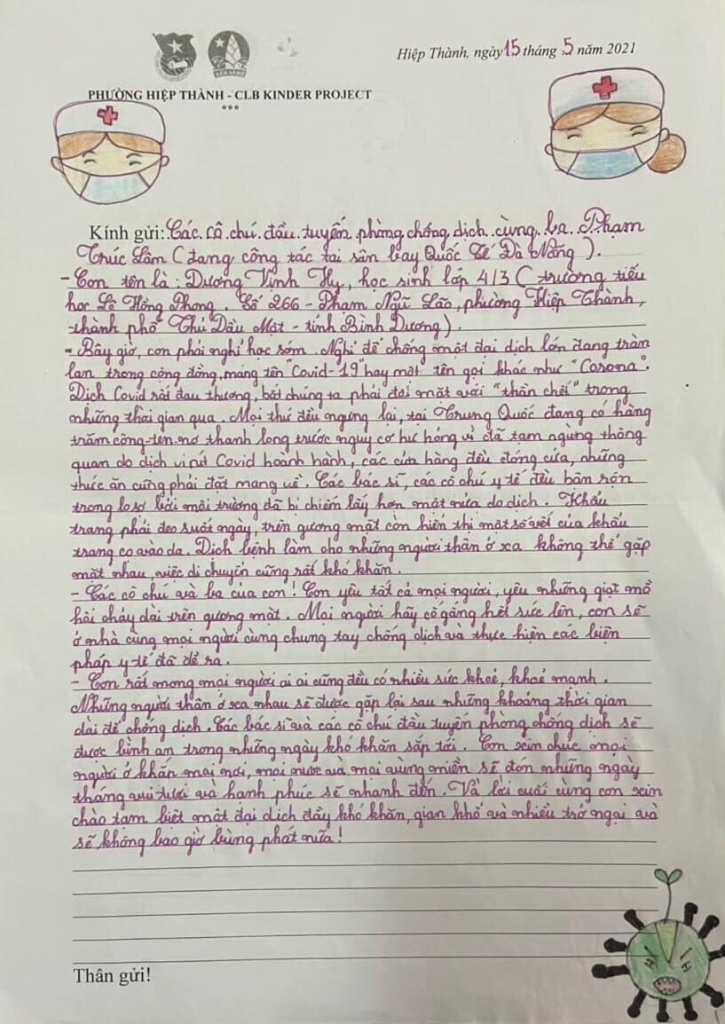 Hiệp Thành, ngày 15 tháng 5 năm 2021
PHƯỜNG HIỆP THÀNH - CLB KINDER PROJECT
***
Kính gửi: Các cô chú đầu tuyến phòng chống dịch cùng ba Phạm
Trúc Lâm (đang công tác tại sân bay Quốc Tế Đà Nẵng).
- Con tên là: Dương Vịnh Hy, học sinh lớp 4/3 (trường tiểu
học Lê Hồng Phong. Số 266 - Phạm Ngũ Lão, phường Hiệp Thành,
thành phố Thủ Dầu Một - tỉnh Bình Dương).
- Bây giờ, con phải nghỉ học sớm. Nghỉ để chống một đại dịch lớn đang tràn
lan trong cộng đồng, mang tên "Covid-19" hay một tên gọi khác như "Corona".
Dịch Covid rải đau thương, bắt chúng ta phải đối mặt với "thần chết" trong
những thời gian qua. Mọi thứ đều ngưng lại, tại Trung Quốc đang có hàng
trăm công-ten-nơ thanh long trước nguy cơ hư hỏng vì đã tạm ngừng thông
quan do dịch vi rút Covid hoành hành, các cửa hàng đều đóng cửa, những
thức ăn cũng phải đặt mang về. Các bác sĩ, các cô chú y tế đều bận rộn
trong lo sợ bởi môi trường đã bị chiếm lấy hơn một nửa do dịch. Khẩu
trang phải đeo suốt ngày, trên gương mặt còn hiển thị một số vết của khẩu
trang co vào da. Dịch bệnh làm cho những người thân ở xa không thể gặp
mặt nhau, việc di chuyển cũng rất khó khăn.
- Các cô chú và ba của con! Con yêu tất cả mọi người, yêu những giọt mồ
hôi chảy dài trên gương mặt. Mọi người hãy cố gắng hết sức lên, con sẽ
ở nhà cùng mọi người cùng chung tay chống dịch và thực hiện các biện
pháp y tế đã đề ra.
- Con rất mong mọi người ai ai cũng đều có nhiều sức khoẻ, khoẻ mạnh.
Những người thân ở xa nhau sẽ được gặp lại sau những khoảng thời gian
dài để chống dịch. Các bác sĩ và các cô chú đầu tuyến phòng chống dịch sẽ
được bình an trong những ngày khó khăn sắp tới. Con xin chúc mọi
người ở khắp mọi nơi, mọi nước và mọi vùng miền sẽ đón những ngày
tháng vui tươi và hạnh phúc sẽ nhanh đến. Và lời cuối cùng con xin
chào tạm biệt một đại dịch đầy khó khăn, gian khổ và nhiều trở ngại và
sẽ không bao giờ bùng phát nữa!
Thân gửi!